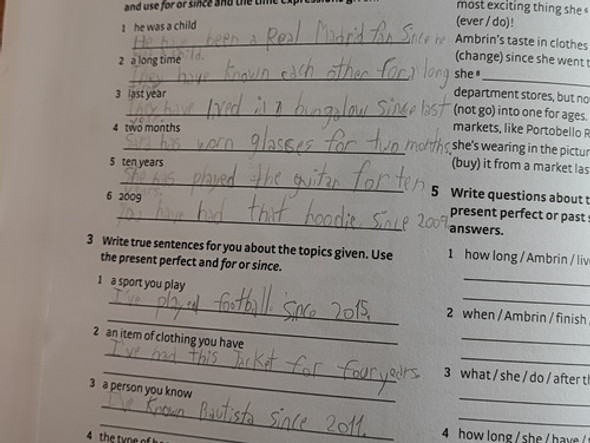 and use for or since and the time expressions
1 he was a child
He have been a Real Madrid fan since he
was a child.
2 a long time
They have known each other for a long
3 last year
They have lived in a bungalow since last
year.
4 two months
Sara has worn glasses for two months.
5 ten years
She has played the guitar for ten
years.
6 2009
You have had that hoodie since 2009
3 Write true sentences for you about the topics given. Use
the present perfect and for or since.
1 a sport you play
I've played football since 2015.
2 an item of clothing you have
I've had this Jacket for four years.
3 a person you know
I've Known Bautista since 2011.
4 the type of
most exciting thing she
(ever / do)!
Ambrin's taste in clothes
(change) since she went t
she
department stores, but no
(not go) into one for ages.
markets, like Portobello R
she's wearing in the pictur
(buy) it from a market las
5 Write questions about t
present perfect or past s
answers.
1 how long / Ambrin / liv
2 when / Ambrin / finish
3 what / she / do / after th
4 how long / she / have /